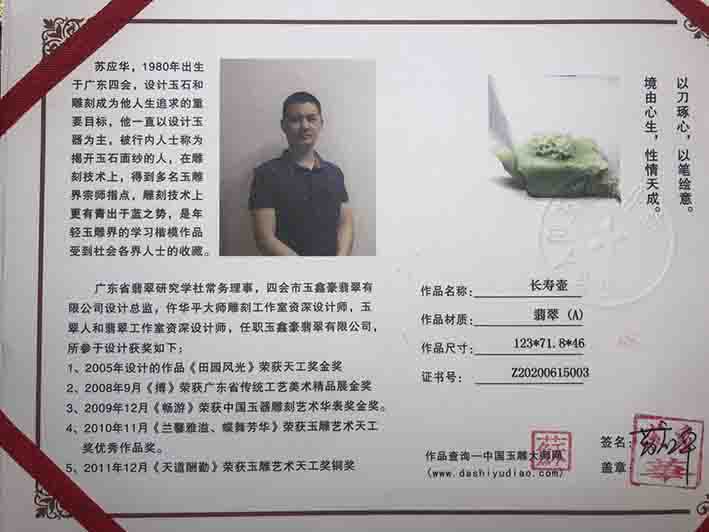 苏应华，1980年出生
于广东四会，设计玉石和
雕刻成为他人生追求的重
要目标，他一直以设计玉
器为主，被行内人士称为
揭开玉石面纱的人，在雕
刻技术上，得到多名玉雕
界宗师指点，雕刻技术上
更有青出于蓝之势，是年
轻玉雕界的学习楷模作品
受到社会各界人士的收藏。
以刀琢心，以笔绘意。
境由心生，性情天成。
广东省翡翠研究学社常务理事，四会市玉鑫豪翡翠有
限公司设计总监，仵华平大师雕刻工作室资深设计师，玉
翠人和翡翠工作室资深设计师，任职玉鑫豪翡翠有限公司，
所参于设计获奖如下：
1、2005年设计的作品《田园风光》荣获天工奖金奖
2、2008年9月《搏》荣获广东省传统工艺美术精品展金奖
3、2009年12月《畅游》荣获中国玉器雕刻艺术华表奖金奖。
4、2010年11月《兰馨雅溢、蝶舞芳华》荣获玉雕艺术天工
奖优秀作品奖。
5、2011年12月《天道酬勤》荣获玉雕艺术天工奖铜奖
作品名称：长寿壶
作品材质：翡翠（A）
作品尺寸：123*71.8*46
证书号：Z20200615003
作品查询—中国玉雕大师网
(www.dashiyudiao.com)
签名：
盖章：